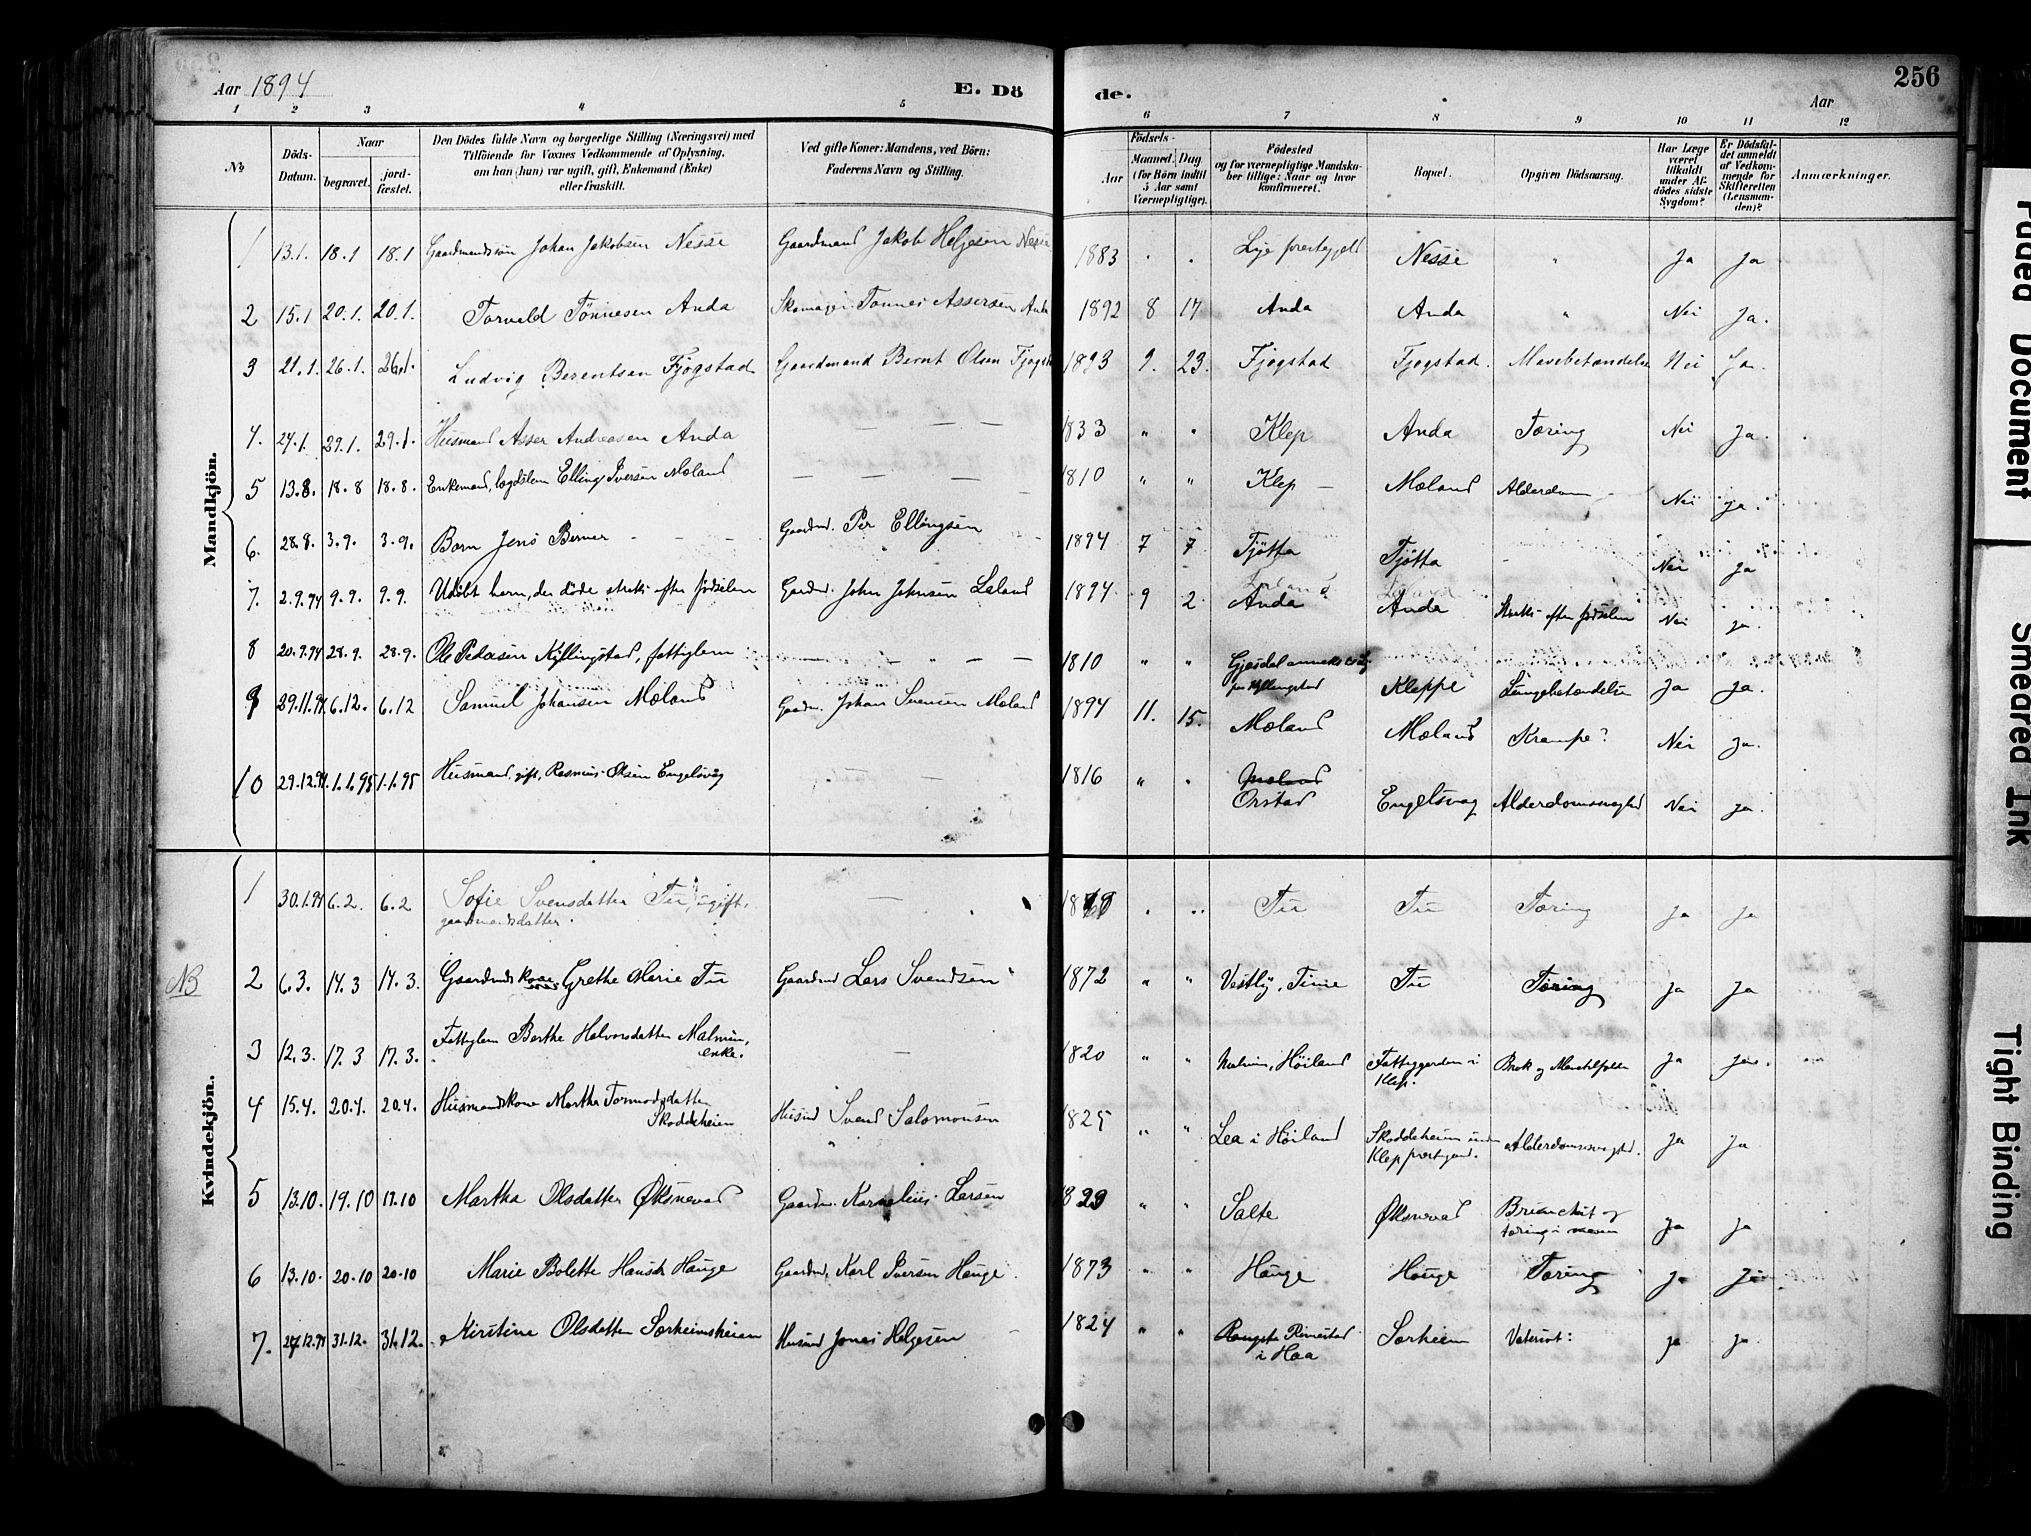 Aar 1894
E. Dö
de.
Aar
256
1 2 3 4 5 6 7 8 9 10 11 12
No
Döds-Datum.
Naar
begravet.
jord-fæstet.
Den Dödes fulde Navn og borgerlige Stilling (Næringsvei) med
Tilföiende for Voxnes Vedkommende af Oplysning,
om han (hun) var ugift, gift, Enkemand (Enke)
eller fraskilt.
Ved gifte Koner: Mandens, ved Börn:
Faderens Navn og Stilling.
Födsels-
Aar
Maaned. Dag
(for Börn indtil
5 Aar samt
Værnepligtige).
Födested
og for værnepligtige Mandska-
ber tillige: Naar og hvor
konfirmeret.
Bopæl.
Opgiven Dödsaarsag.
Har Læge
været
tilkaldt
under Af-
dödes sidste
Sygdom?
Er Dödsfal-
det anmeldt
af Vedkom-
mende for
Skifteretten
(Lensman-
den)?
Anmærkninger.
Mandkjön.
1 13.1. 18.1 18.1 Gaardmandssön Johan Jakobsen Nesse Gaardmand Jakob Helgesen Nesse 1883 " " Lye prestegjeld Nesse " Ja Ja
2 15.1 20.1. 20.1. Torvald Tönnesen Anda Skomager Tönnes Assersen Anda 1892 8 17 Anda Anda " Nei Ja.
3 21.1. 26.1. 26.1. Ludvig Berentsen Fjogstad Gaardmand Bernt Olsen Fjogstad 1893 9. 23. Fjogstad Fjogstad. Mavebetændelse Nei Ja.
4. 24.1. 29.1. 29.1. Husmand Asser Andreasen Anda — — — 1833 " " Klep Anda Tæring Nei Ja.
5 13.8. 18.8 18.8. Enkemand, lægdslem Elling Iversen Mæland — — — — 1810 " " Klep Mæland Alderdom Nei Ja.
6. 28.8. 3.9. 3.9. Barn Jens Berner Gaardm. Per Ellingsen 1894 7 7 Tjötta Tjötta Nei Ja
7. 2.9.94 9.9. 9.9. Udöbt barn, der döde straks efter födselen Gaardm. John Johnsen Laland 1894 9 2. Anda Anda Straks efter födselen Nei Ja.
8 20.9.94 28.9. 28.9. Ole Pedersen Kyllingstad, fattiglem 1810 " " Gjesdal anneks til Lye, fra Kyllingstad Kleppe Lungebetændelse Ja Ja.
9 29.11.94 6.12. 6.12 Samuel Johansen Mæland Gaardm. Johan Svensen Mæland 1894 11. 15. Mæland Mæland Krampe? Nei Ja.
10 29.12.94. 1.1.95 1.1.95 Husmand, gift, Rasmus Olsen Engelsvåg 1816 " " Mæland Orstad Engelsvag Alderdomssvaghed Nei Ja.
Kvindekjön.
1 30.1.94 6.2. 6.2 Sofie Svensdatter Tu, ugift,
gaardmandsdatter. — Tu Tu Tæring Ja Ja
NB 2 6.3. 14.3 14.3. Gaardmdskone Grethe Marie Tu Gaardmd Lars Svendsen 1872 " " Vestly, Time Tu Tæring Ja Ja
3 12.3. 17.3 17.3. Fattiglem Berthe Halvorsdatter Malmin,
enke. — 1820 " " Malmin, Höiland Fattiggarden i
Klep. Brok og Ja Ja.
4 15.4. 20.4. 20.4. Husmandskone Martha Tormodsdatter
Skoddeheien Husmd Svend Salomonsen 1825 " " Lea i Höiland Skoddeheien under
Klep prestegard. Alderdomssvaghed. Ja Ja
5 13.10. 19.10 19.10 Martha Olsdatter Öksnevad Gaardm. Kornelius Larsen 1829 " " Salte Öksnevad og
tæring i Ja Ja
6 13.10. 20.10 20.10 Marie Bolette Hansdr Hauge Gaardmd. Karl Iversen Hauge. 1873 " " Hauge Hauge Tæring Ja Ja
7. 27.12.94 31.12. 31.12. Kirstine Olsdatter Sørheimsheien Husmd Jonas Helgesen 1824 " " Rimestad
i Haa Sørheim Vatersot: Ja Ja.
Faded Document
Smeared Ink
Tight Binding